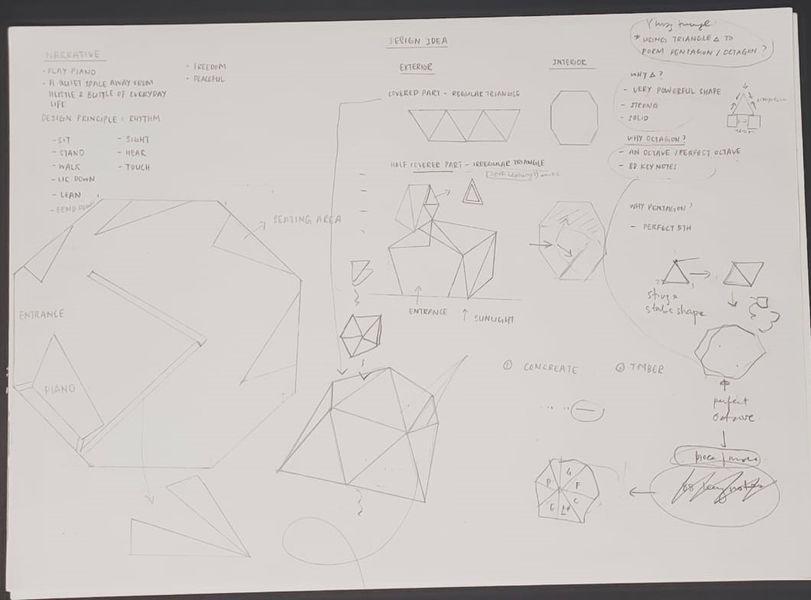 NARRATIVE
- PLAY PIANO
- A QUIET SPACE AWAY FROM
HUSTLE & BUSTLE OF EVERYDAY
LIFE
- FREEDOM
- PEACEFUL
DESIGN PRINCIPLE : RHYTHM
- SIT
- STAND
- WALK
- LIE DOWN
- LEAN
- BEND DOWN
- SIGHT
- HEAR
- TOUCH
SEATING AREA
ENTRANCE
PIANO
DESIGN IDEA
EXTERIOR
INTERIOR
COVERED PART - REGULAR TRIANGLE
HALF COVERED PART - IRREGULAR TRIANGLE
ENTRANCE
SUNLIGHT
① CONCREATE
② TIMBER
triangle
* USING TRIANGLE △ TO
FORM PENTAGON / OCTAGON ?
WHY △ ?
- VERY POWERFUL SHAPE
- STRONG
- SOLID
WHY OCTAGON ?
- AN OCTAVE / PERFECT OCTAVE
- 88 KEY NOTES
WHY PENTAGON ?
- PERFECT 5TH
shape
perfect
octave
G
F
C
E